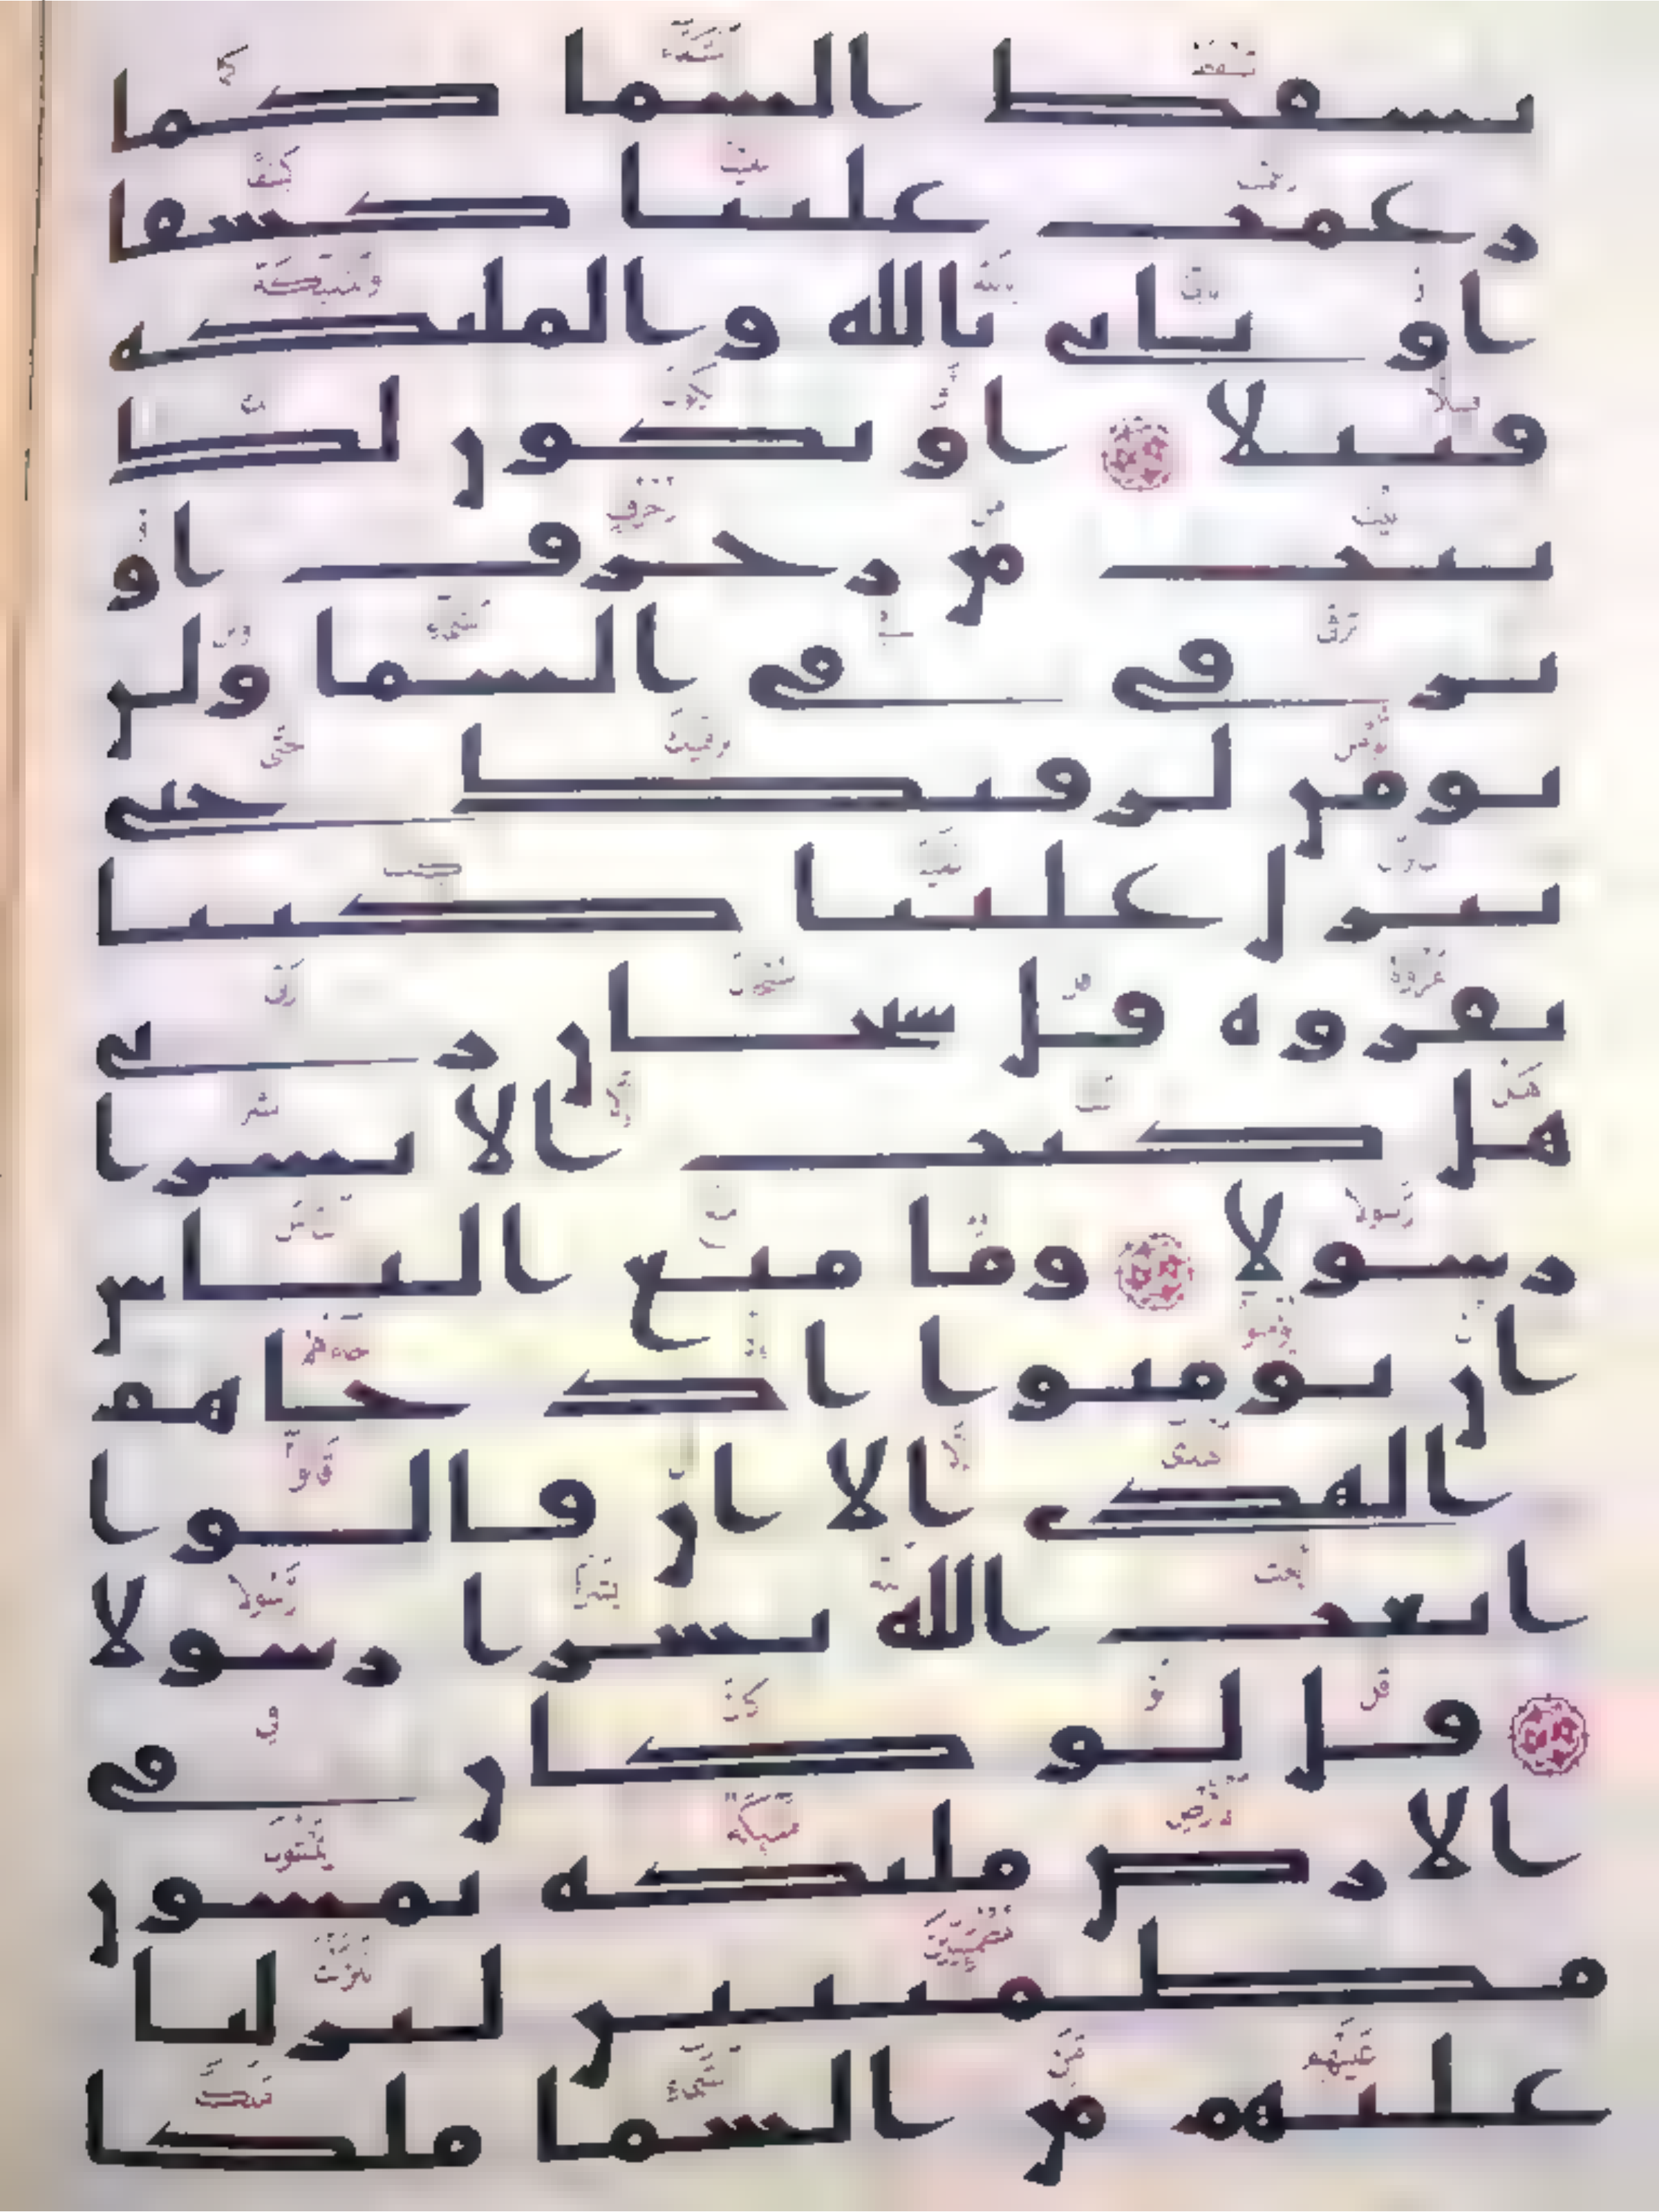 تسقط السما كما
زعمت علينا كسفا
او تاتي بالله والملئكه
قبيلا او يكون لك
بيت من زخرف او
ترقى في السما ولن
نومن لرقيك حتى
تنزل علينا كتبا
نقروه قل سبحان ربي
هل كنت الا بشرا
رسولا وما منع الناس
ان يومنوا اذ جاهم
الهدى الا ان قالوا
ابعث الله بشرا رسولا
قل لو كان في
الارض ملئكه يمشون
مطمئنين لنزلنا
عليهم من السما ملكا